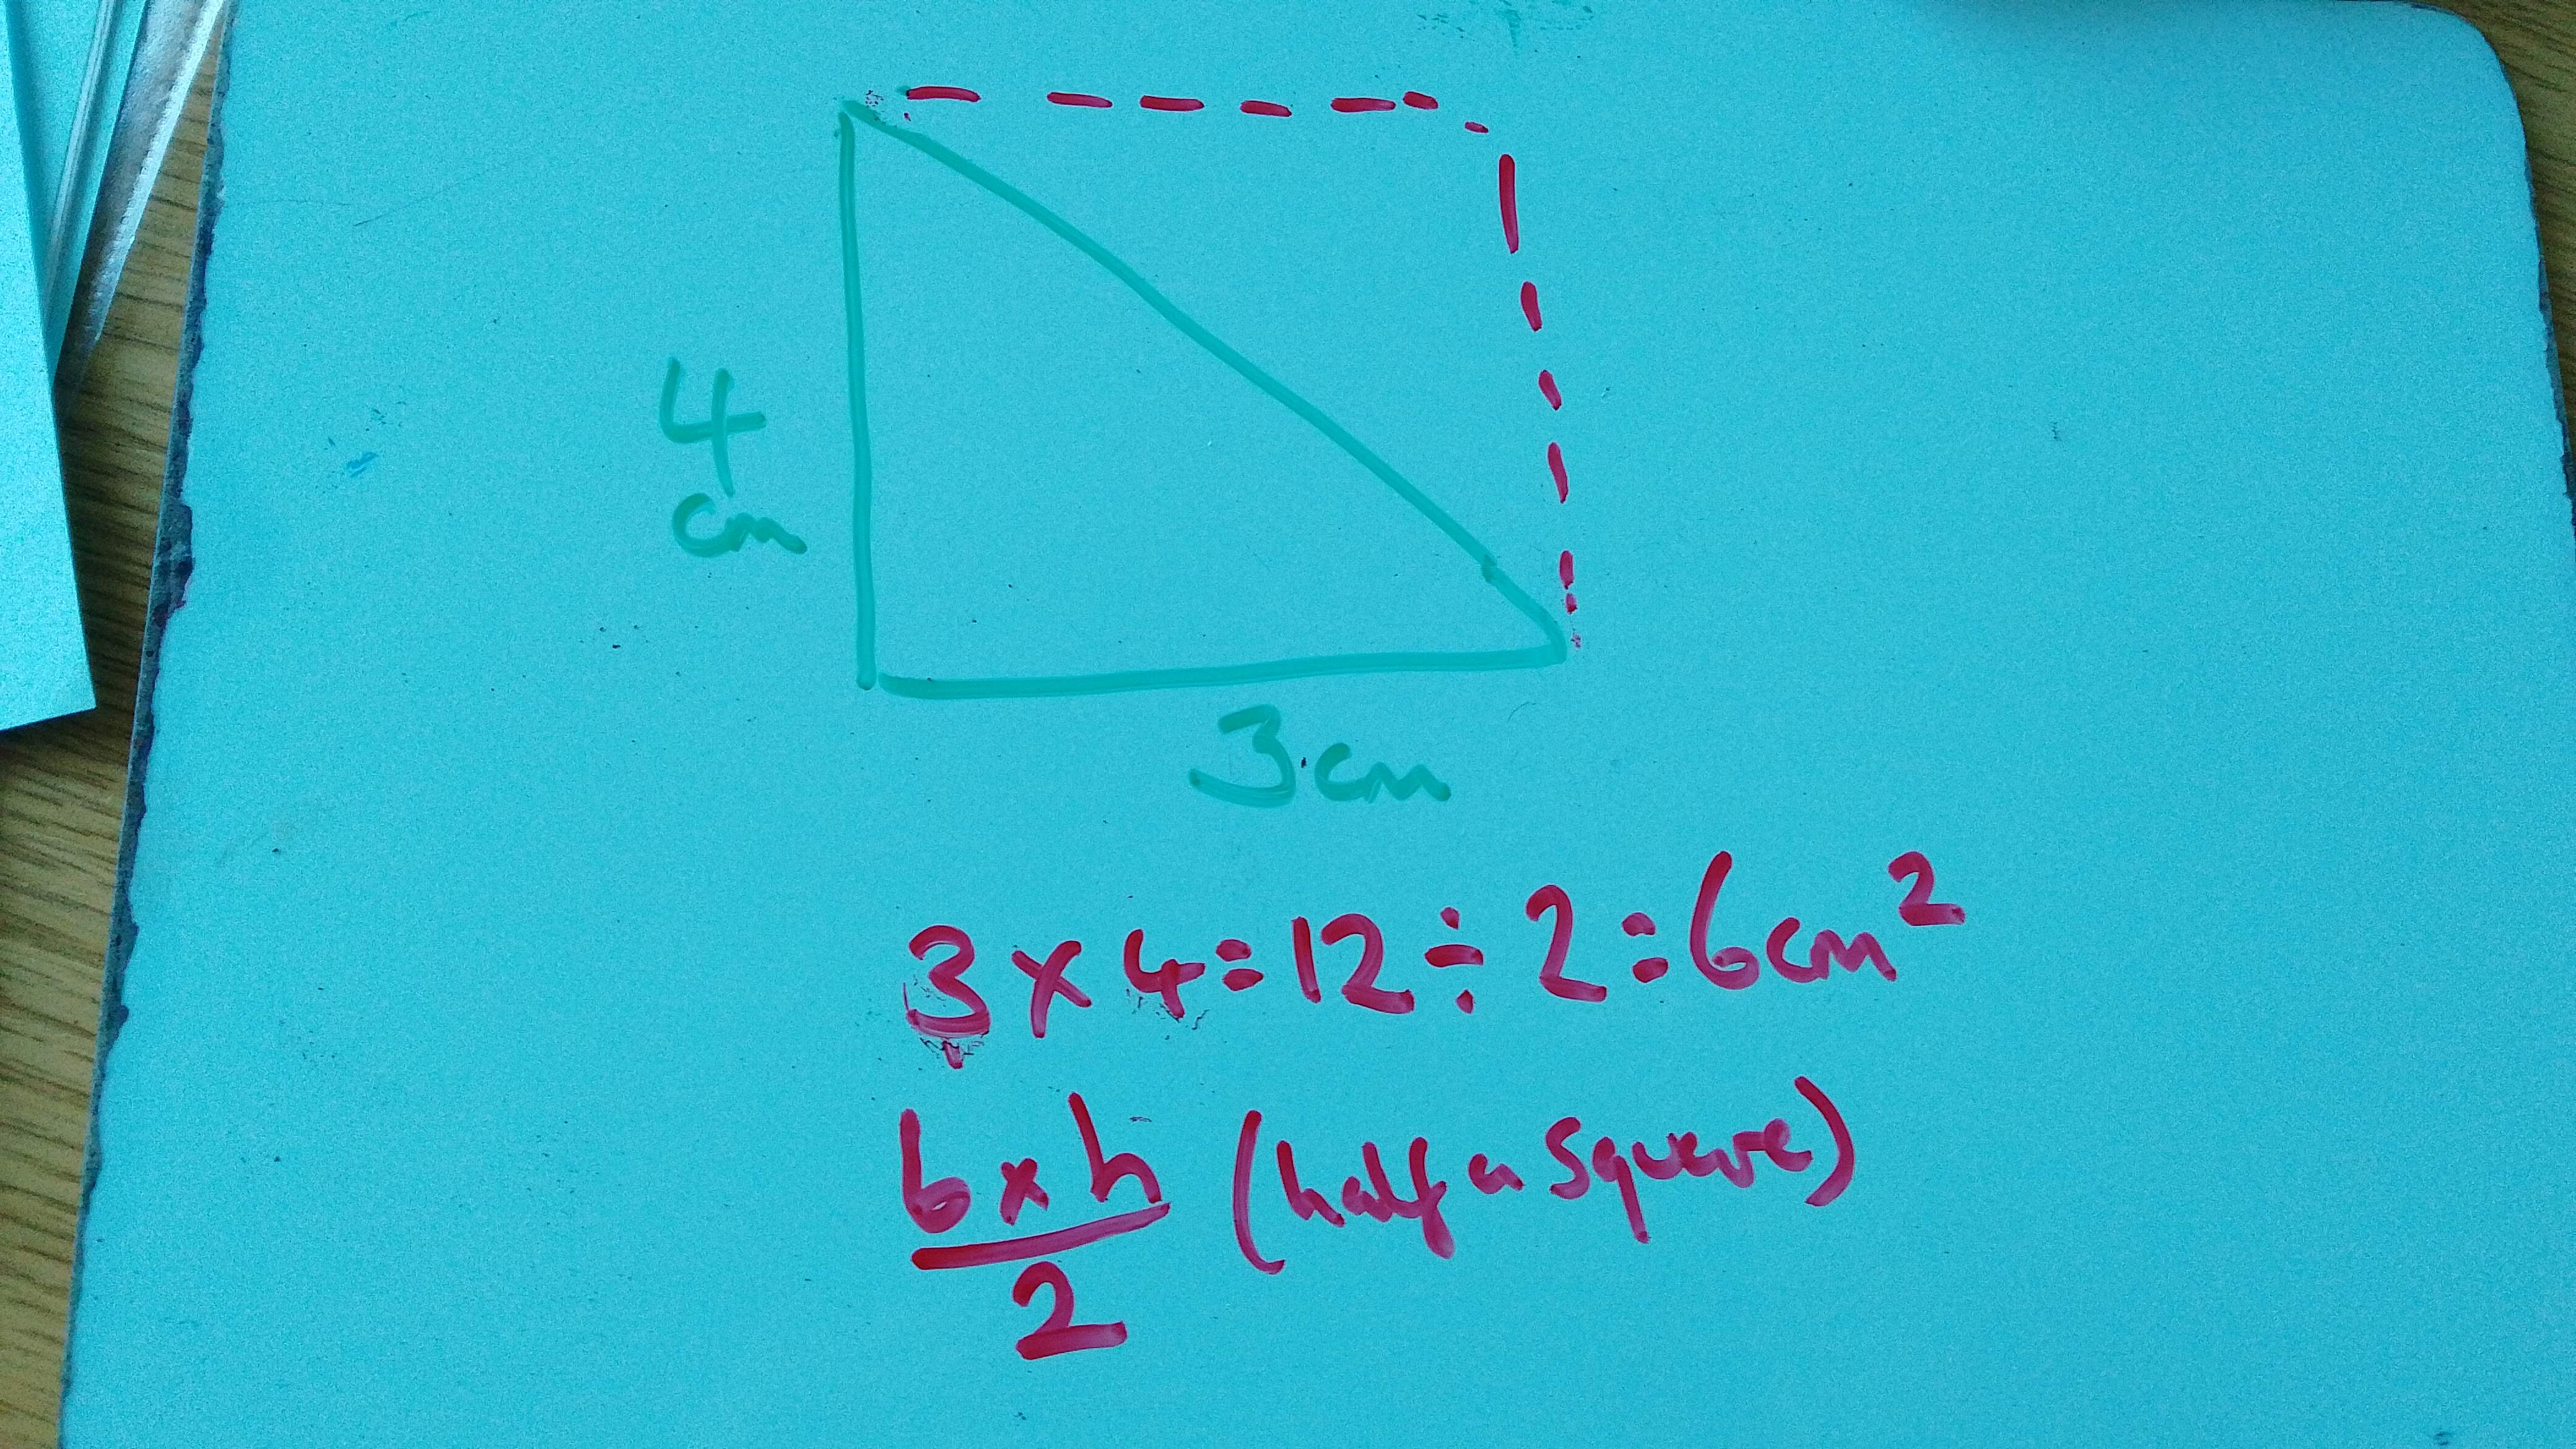 4
cm
3cm
3 x 4 = 12 ÷ 2 = 6cm²
b x h (half a square)
2